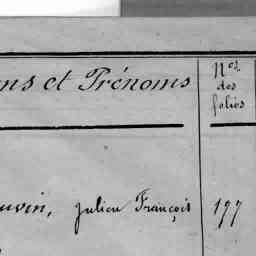 ns et Prénoms
Nos
des
folios
uvin, Julien François 197